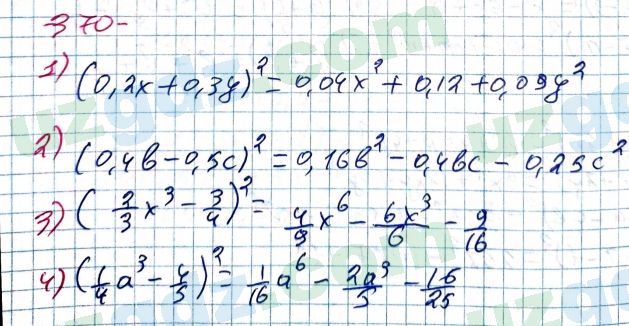 370-
1) (0,2x+0,3y)²=0,04x²+0,12+0,09y²
2) (0,4b-0,5c)²=0,16b²-0,4bc-0,25c²
3) (2/3x³-3/4)²=4/9x⁶-6x³/6-9/16
4) (1/4a³-4/5)²=1/16a⁶-2a³/5-16/25